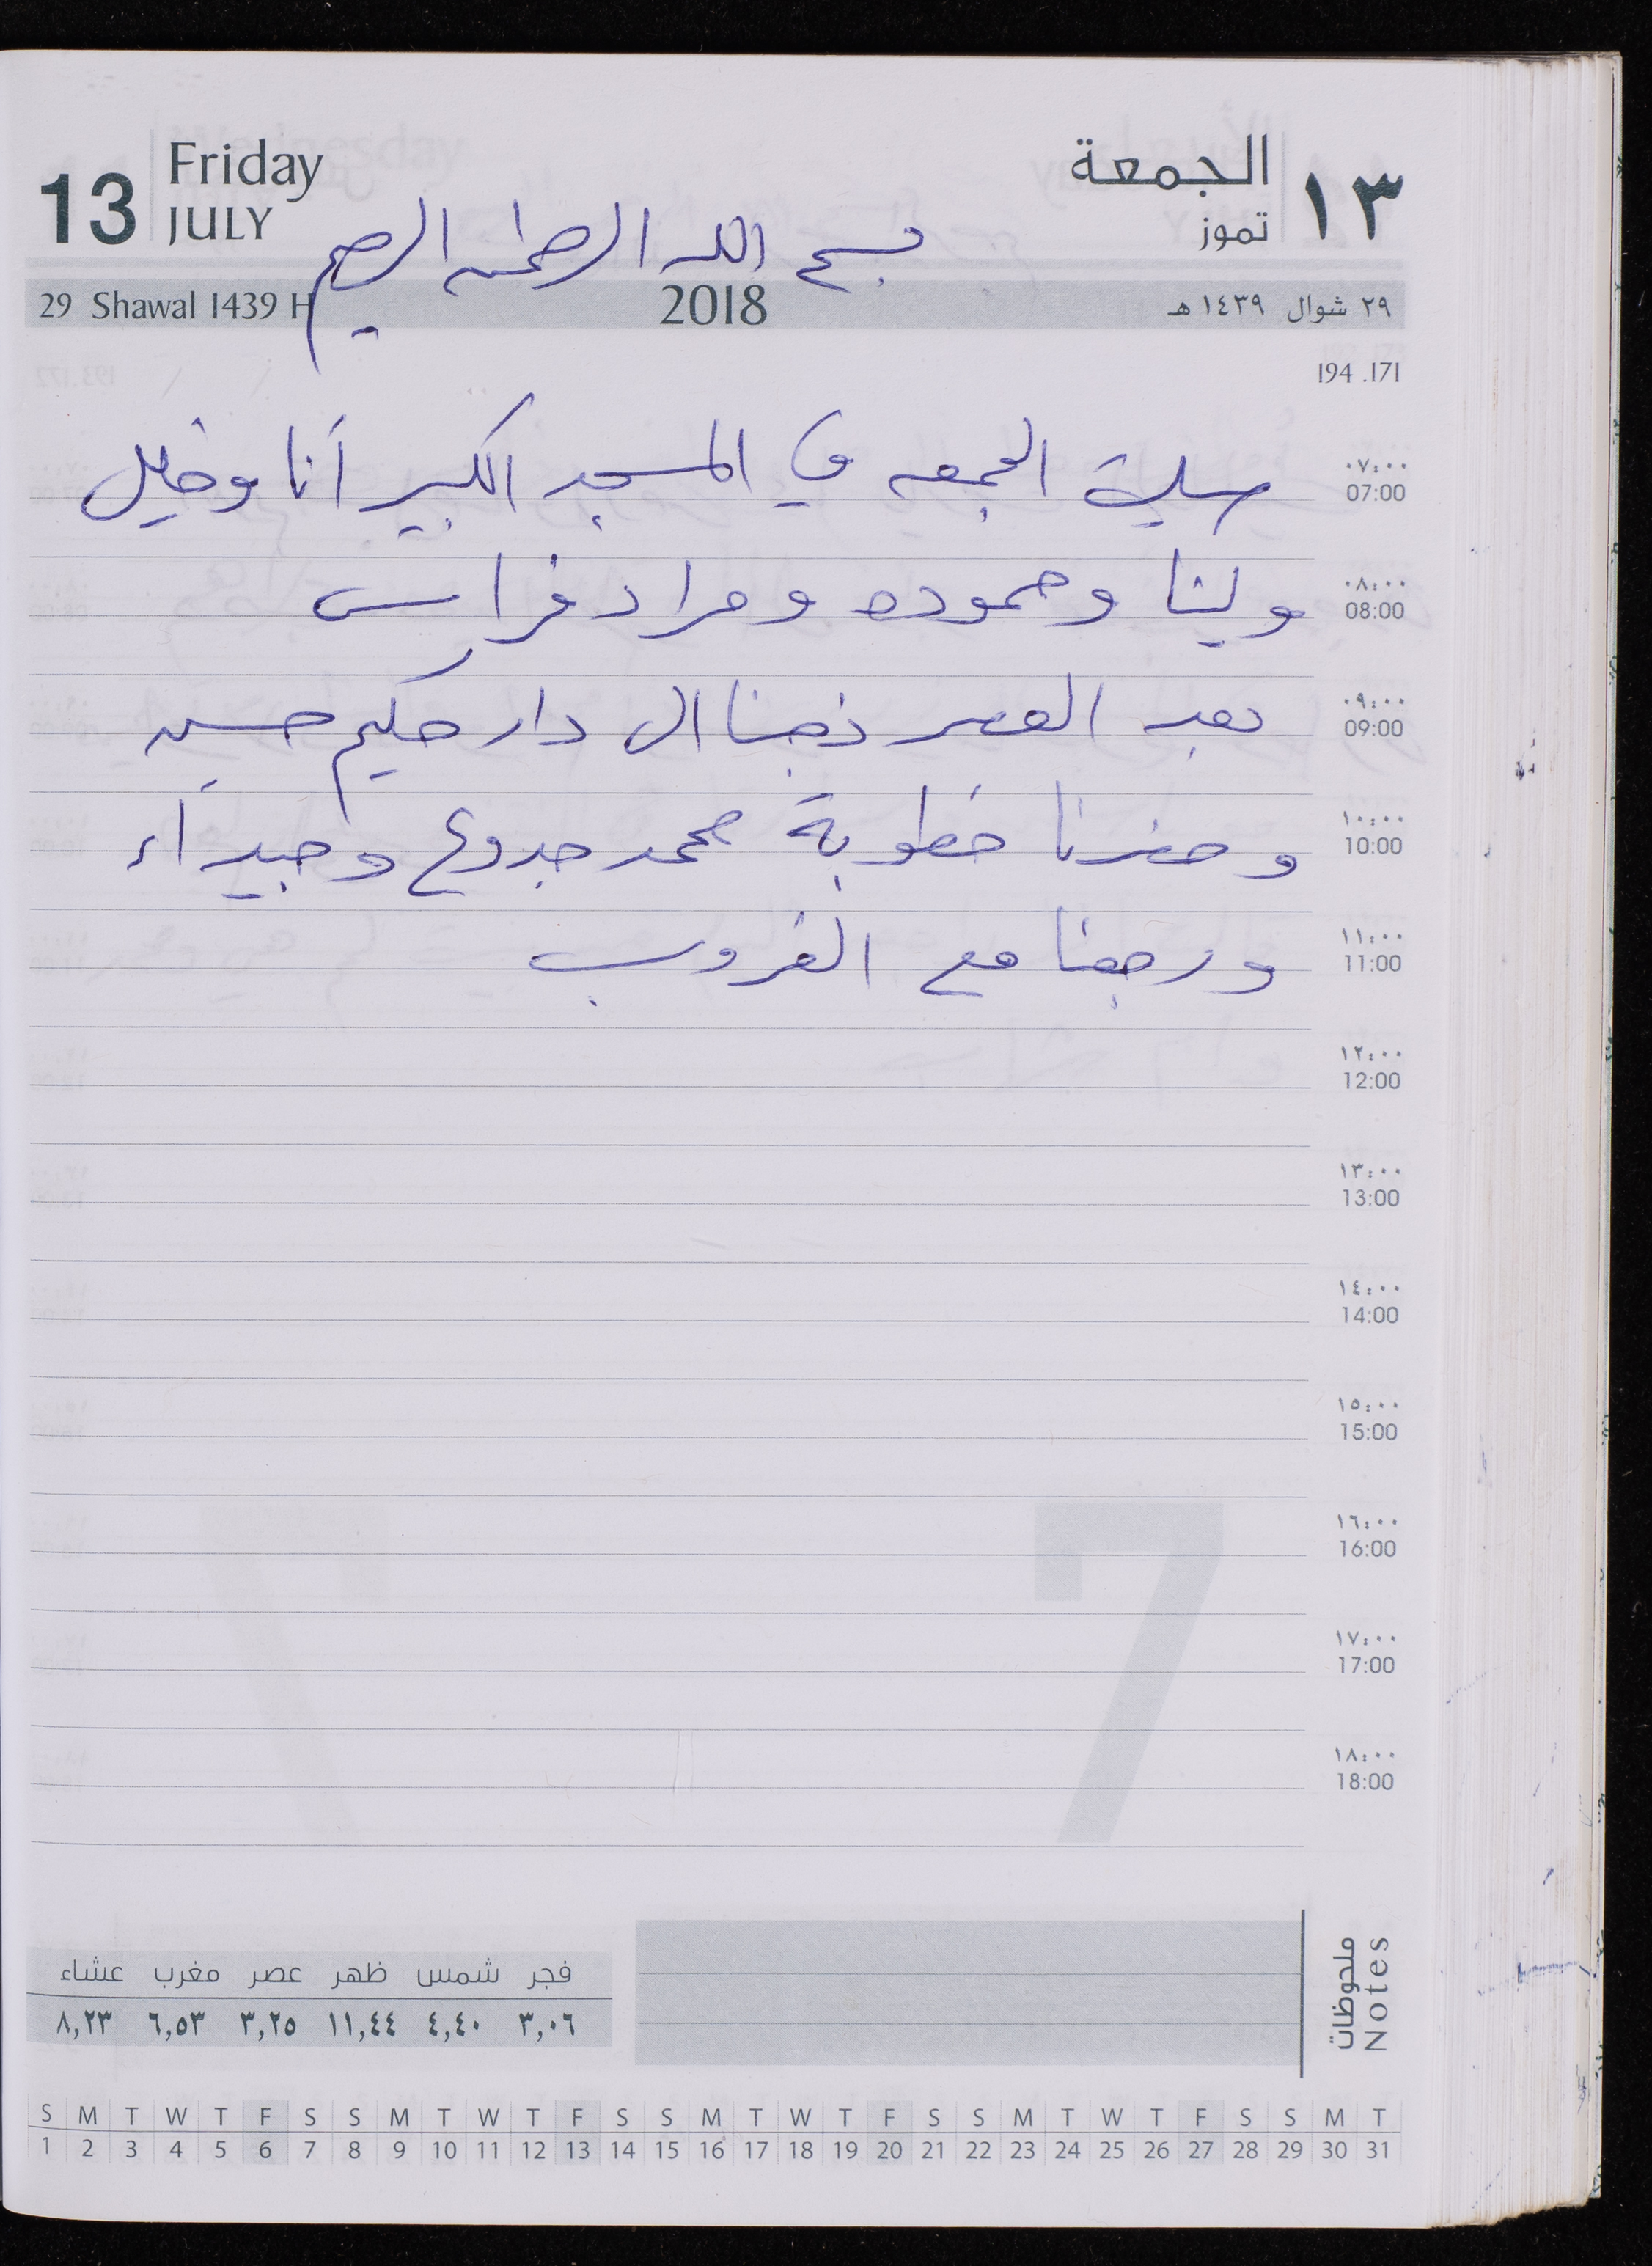 13 Friday JULY الجمعة تموز ١٣
بسم الله الرحمن الرحيم
29 Shawal 1439 H 2018 ٢٩ شوال ١٤٣٩ هـ
194 .171
صلية الجمعه في المسجد الكبير أنا وخليل
٠٧:٠٠ 07:00
ولينا وحموده ومراد فراس
٠٨:٠٠ 08:00
بعد العصر ذهبنا الى دار حكيم حسين
٠٩:٠٠ 09:00
وحضرنا خطوبة محمد جدوع و
١٠:٠٠ 10:00
ورجعنا مع الغروب
١١:٠٠ 11:00
١٢:٠٠ 12:00
١٣:٠٠ 13:00
١٤:٠٠ 14:00
١٥:٠٠ 15:00
١٦:٠٠ 16:00
7
١٧:٠٠ 17:00
١٨:٠٠ 18:00
ملحوظات Notes
فجر شمس ظهر عصر مغرب عشاء
٣,٠٦ ٤,٤٠ ١١,٤٤ ٣,٢٥ ٦,٥٣ ٨,٢٣
S M T W T F S S M T W T F S S M T W T F S S M T W T F S S M T
1 2 3 4 5 6 7 8 9 10 11 12 13 14 15 16 17 18 19 20 21 22 23 24 25 26 27 28 29 30 31